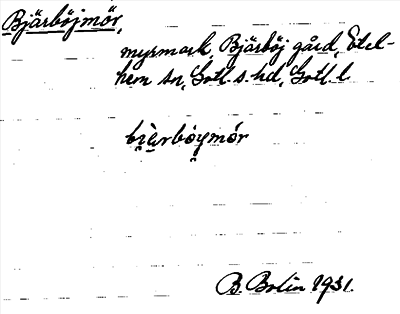 Bjärböjmör,
myrmark, Bjärböj gård, Etel-
hem sn, Gotl. s. hd, Gotl. l
bi̯ èrböymór
B. Bolin 1931.